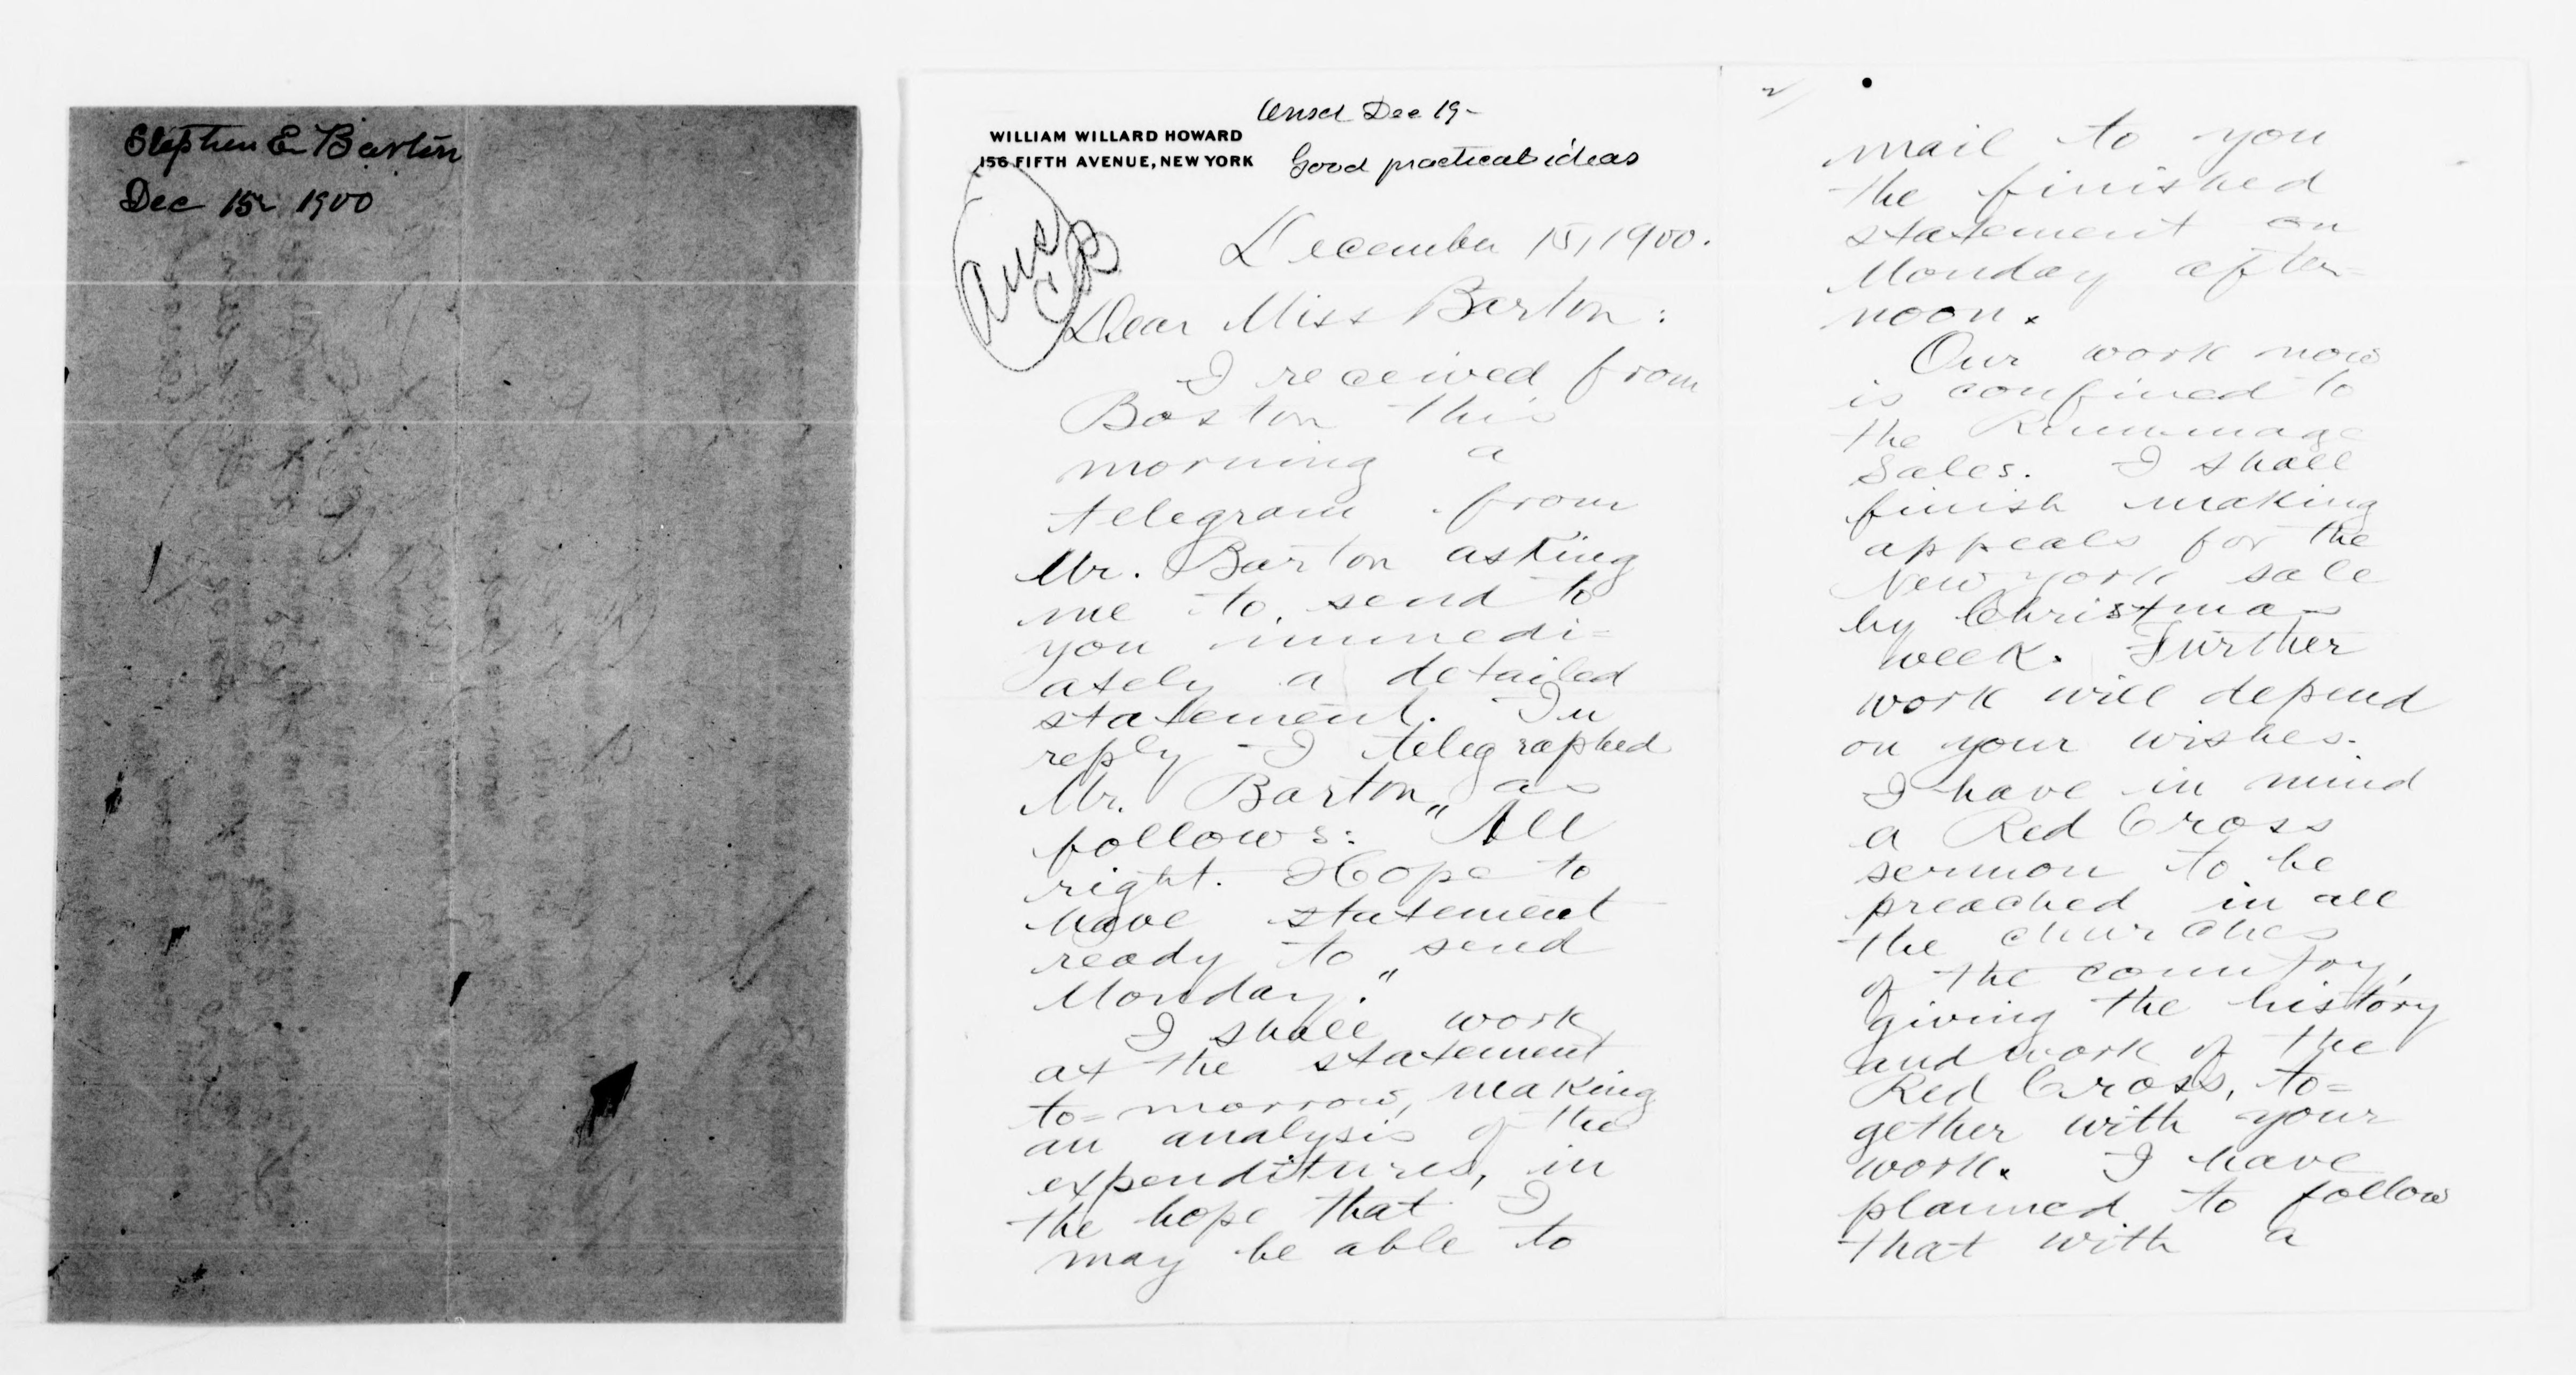 Stephen E Barton
Dec 15 1900
Ansd Dec 19-
WILLIAM WILLARD HOWARD
156 FIFTH AVENUE, NEW YORK
Good practical ideas
Ans
CB
December 15, 1900.
Dear Miss Barton:
I received from
Boston this
morning a
telegram from
Mr. Barton asking
me to send to
you immedi=
ately a detailed
statement. In
reply I telegraphed
Mr. Barton as
follows: "All
right. Hope to
have statement
ready to send
Monday."
I shall work
at the statement
to=morrow, making
an analysis of the
expenditures, in
the hope that I
may be able to
2/
mail to you
the finished
statement on
Monday after=
noon.
Our work now
is confined to
the Rummage
Sales. I shall
finish making
appeals for the
New York sale
by Christmas
week. Further
work will depend
on your wishes.
I have in mind
a Red Cross
sermon to be
preached in all
the churches
of the country,
giving the history
and work of the
Red Cross, to=
gether with your
work. I have
planned to follow
that with a